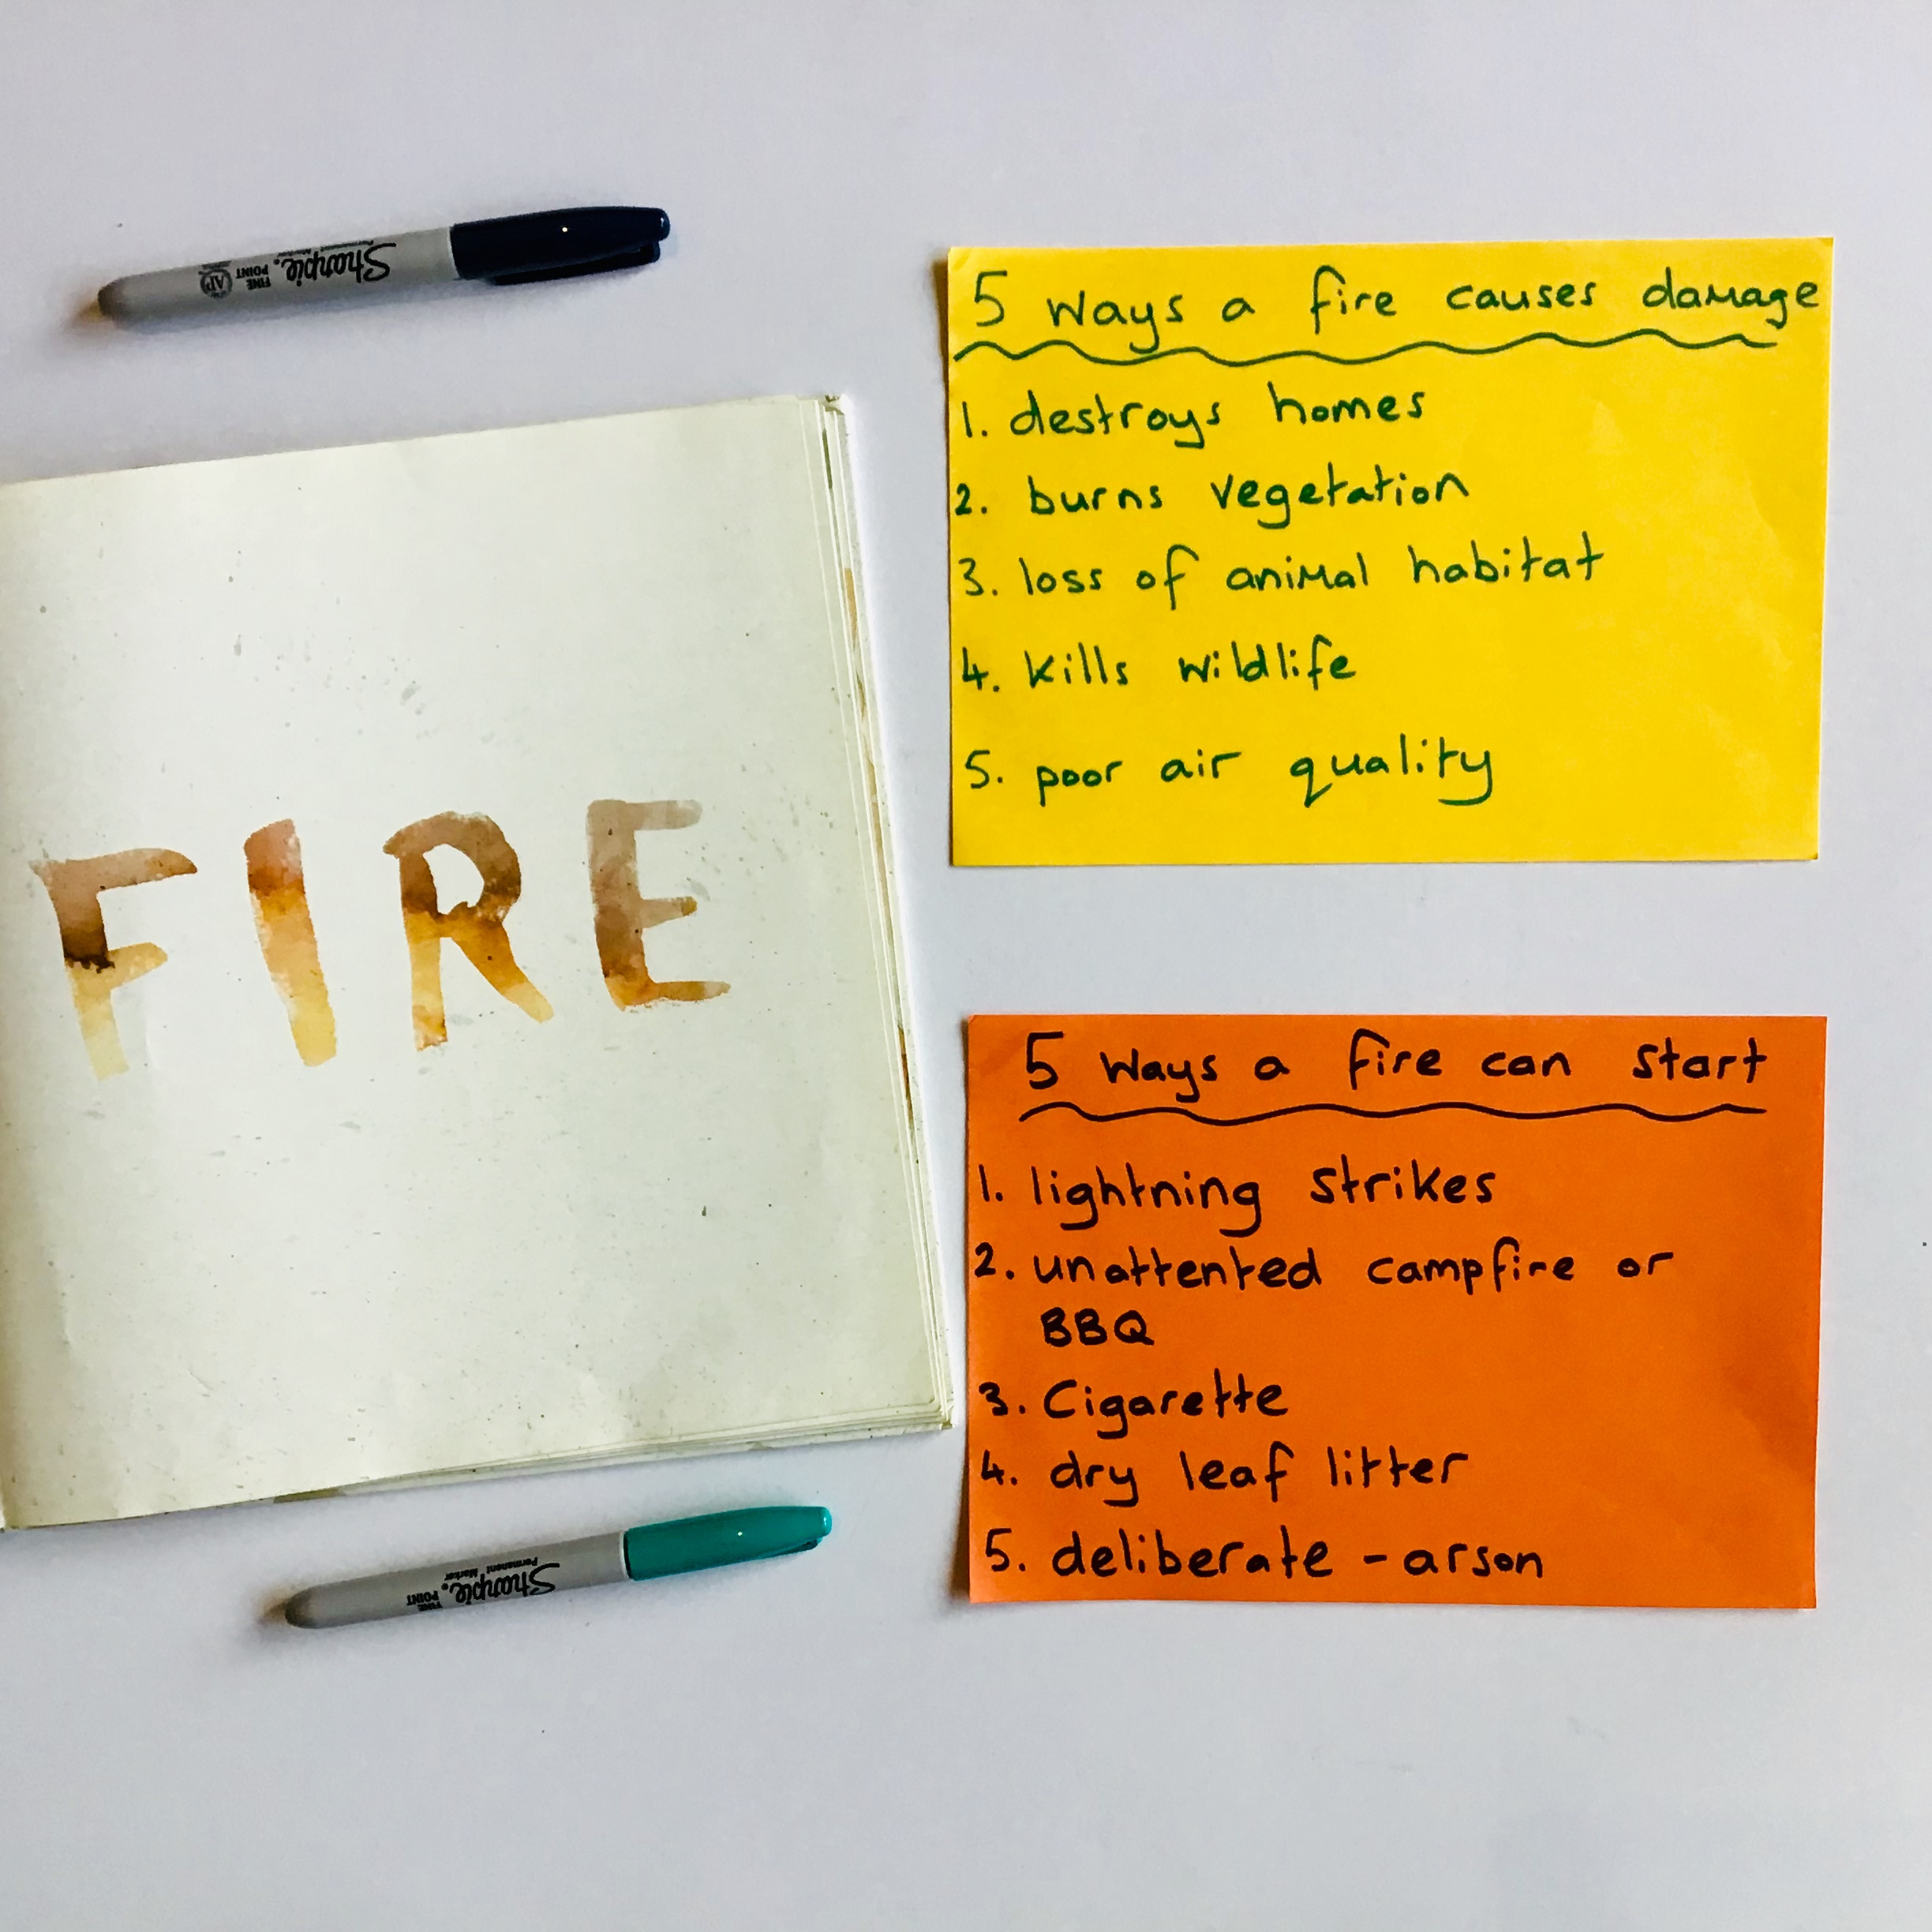 Sharpie.
FINE
POINT
Permanent Marker
AP
FIRE
Sharpie.
FINE
POINT
Permanent Marker
5 ways a fire causes damage
1. destroys homes
2. burns vegetation
3. loss of animal habitat
4. kills wildlife
5. poor air quality
5 ways a fire can start
1. lightning strikes
2. unattented campfire or
BBQ
3. Cigarette
4. dry leaf litter
5. deliberate - arson